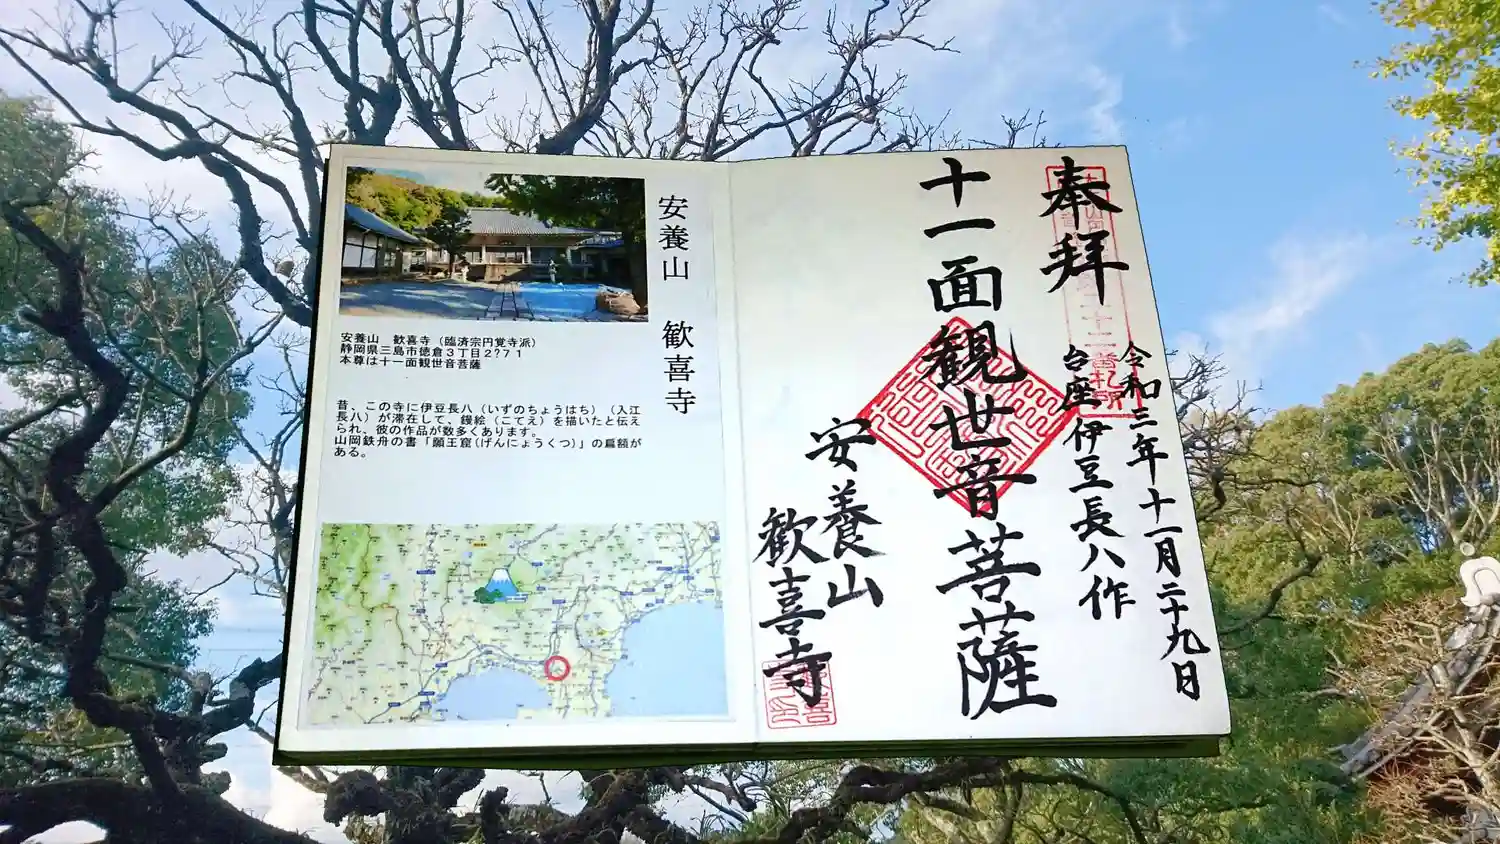 安養山 歓喜寺
安養山 歓喜寺(臨済宗円覚寺派)
静岡県三島市徳倉3丁目2?71
本尊は十一面観世音菩薩
昔、この寺に伊豆長八(いずのちょうはち)(入江
長八)が滞在して、鏝絵(こてえ)を描いたと伝え
られ、彼の作品が数多くあります。
山岡鉄舟の書「願王窟(げんにょうくつ)」の扁額が
ある。
奉拝
令和三年十一月二十九日
台座伊豆長八作
十一面観世音菩薩
安養山
歓喜寺